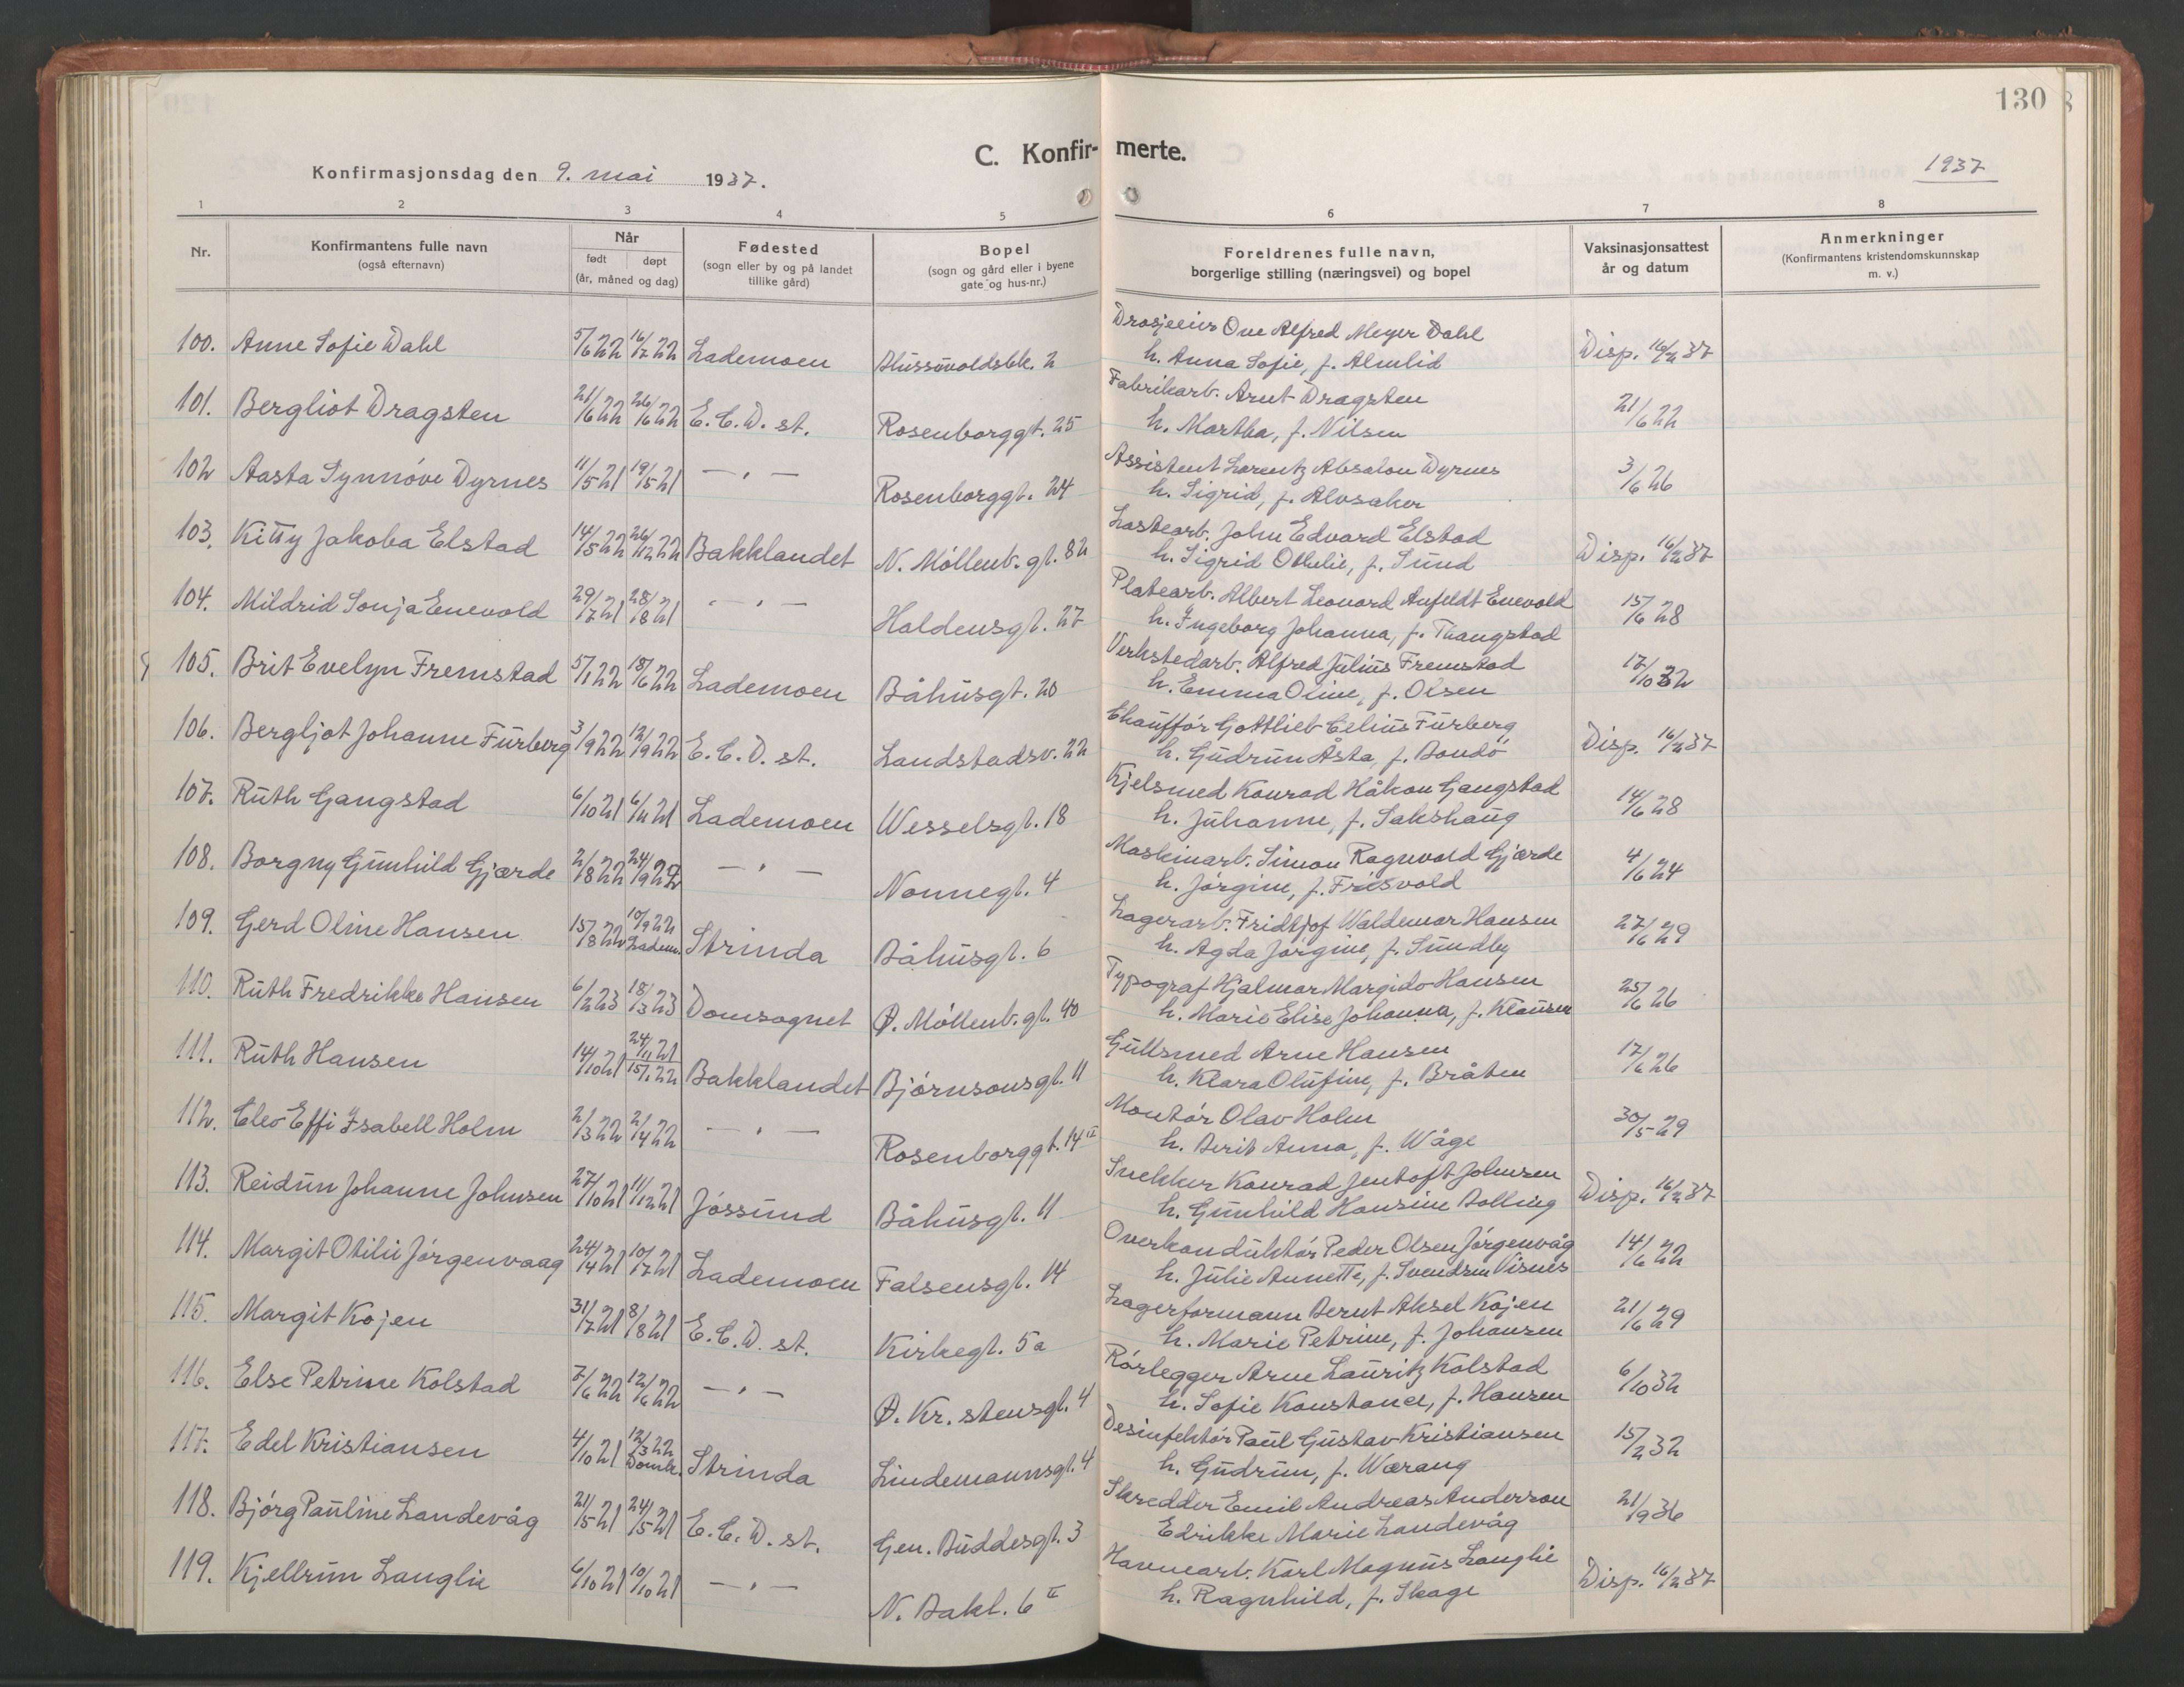 130
C. Konfirmerte.
Konfirmasjonsdag den 9. mai 1937.
1937
1 2 3 4 5 6 7 8
Nr.
Konfirmantens fulle navn
(også efternavn)
Når
født døpt
(år, måned og dag)
Fødested
(sogn eller by og på landet
tillike gård)
Bopel
(sogn og gård eller i byene
gate og hus-nr.)
Foreldrenes fulle navn,
borgerlige stilling (næringsvei) og bopel
Vaksinasjonsattest
år og datum
Anmerkninger
(Konfirmantens kristendomskunnskap
m. v.)
100. Anne Sofie Dahl 5/6 22 16/7 22 Lademoen 2 Drosjeeier Ove Alfred Meyer Dahl Disp. 16/2 37
h. Anna Sofie, f. Almlid
101. Bergliot Dragsten 21/6 22 26/6 22 E. C. D. st. Rosenborggt. 25 Fabrikarb. Arnt Dragsten 21/6 22
h. Martha, f. Nilsen
102 Aasta Synnöve Dyrnes 11/5 21 19/5 21 — " — Rosenborggt. 24 Assistent Lorentz Absalon Dyrnes 3/6 26
h. Sigrid, f. Alvsaker
103. Kitty Jakoba Elstad 14/5 22 26/12 22 Bakklandet N. Möllenb. gt. 82 Lastearb. John Edvard Elstad Disp. 16/2 37
h. Sigrid Othelie, f. Sund
104. Mildrid Sonja Enevold 29/7 21 28/8 21 — " — Haldensgt. 27 Platearb. Albert Leonard Anfeldt Enevold 15/6 28
h. Ingeborg Johanna, f. Thangstad
105. Brit Evelyn Fremstad 5/1 22 18/6 22 Lademoen Båhusgt. 20 Verkstedarb. Alfred Julius Fremstad 17/10 32
h. Emma Oline, f. Olsen
106. Bergljot Johanne Furberg 3/9 22 12/9 22 E. C. D. st. Landstadsv. 22 Chaufför Gottlieb Celius Furberg Disp. 16/2 37
h. Gudrun Åsta, f. Bondö
107. Ruth Gangstad 6/10 21 6/11 21 Lademoen Wesselsgt. 18 Kjelsmed Konrad Håkon Gangstad 14/6 28
h. Juhanne, f. Sakshaug
108. Borgny Gunhild Gjærde 2/8 22 24/9 22 — " — Nonnegt. 4 Maskinarb. Simon Ragnvald Gjærde 4/6 24
h. Jörgine, f. Frisvold
109. Gerd Oline Hansen 15/8 22 10/9 22 Ladem. Strinda Båhusgt. 6 Lagerarb. Fridtjof Waldemar Hansen 27/6 29
h. Agda Jörgine, f. Sundby
110. Ruth Fredrikke Hansen 6/2 23 18/3 23 Domsognet Ø. Möllenb. gt. 40 Typograf Hjalmar Margido Hansen 25/6 26
h. Marie Elise Johanna, f. Klausen
111. Ruth Hansen 14/10 21 24/11 21 15/1 22 Bakklandet Björnsonsgt. 11 Gullsmed Arne Hansen 17/6 26
h. Klara Olufine, f. Bråten
112. Cleo Effi Isabell Holm 2/3 22 2/4 22 — " — Rosenborggt. 14 II Montör Olav Holm 30/5 29
h. Berit Anna, f. Wåge
113. Reidun Johanne Johnsen 27/10 21 11/12 21 Jössund Båhusgt. 11 Snekker Konrad Jentoft Johnsen Disp. 16/2 37
h. Gunhild Hansine Bolling
114. Margit Otilie Jörgenvaag 24/4 21 10/7 21 Lademoen Falsensgt. 14 Overkonduktör Peder Olsen Jörgenvåg 14/6 22
h. Julie Annette, f. Svendsen Visnes
115. Margit Kojen 31/7 21 8/8 21 E. C. D. st. Kirkegt. 5a Lagerformann Bernt Aksel Kojen 21/6 29
h. Marie Petrine, f. Johansen
116. Else Petrine Kolstad 7/6 22 12/6 22 — " — Ø. Kr. stensgt. 4 Rörlegger Arne Lauritz Kolstad 6/10 32
h. Sofie Konstance, f. Hansen
117. Edel Kristiansen 4/10 21 12/3 22 Domk. Strinda Lindemannsgt. 4 Desinfektör Paul Gustav Kristiansen 15/2 32
h. Gudrun, f. Wærang
118. Björg Pauline Landevåg 21/5 21 24/5 21 E. C. D. st. Gen. Buddesgt. 3 Skredder Emil Andreas Anderson 21/9 36
Edrikke Marie Landevåg
119. Kjellrun Langlie 6/10 21 10/10 21 — " — N. Bakl. 6 II Havnearb. Karl Magnus Langlie Disp. 16/2 37
h. Ragnhild, f. Skage